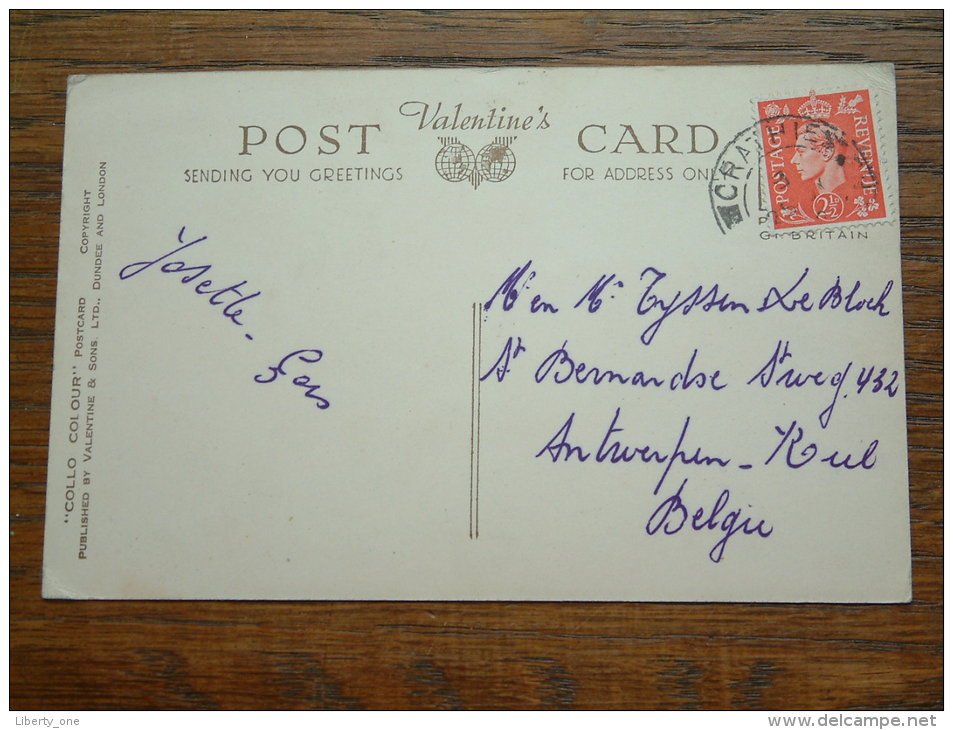 POST Valentine's CARD
SENDING YOU GREETINGS FOR ADDRESS ONLY
POSTAGE REVENUE
2½D
CRATHIE
GT BRITAIN
"COLLO COLOUR" POSTCARD COPYRIGHT
PUBLISHED BY VALENTINE & SONS. LTD., DUNDEE AND LONDON
Josette -
Mr en Mr Tyssen & Le Block
St Bernardse Stweg. 432
Antwerpen - Kiel
Belgie
Liberty_one
www.delcampe.net